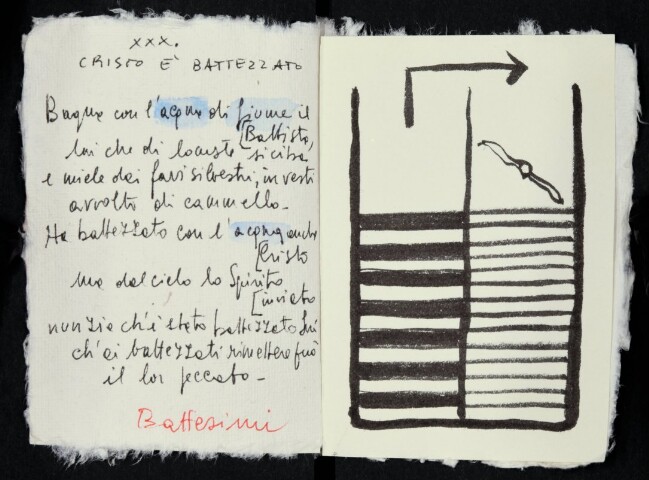 XXX.
CRISTO E' BATTEZZATO
Bagna con l'acqua di fiume il
[Battista,
lui che di locuste si ciba
e miele dai favi silvestri, in vesti
avvolto di cammello.
Ha battezzato con l'acqua anche
[Cristo
ma dal cielo lo Spirito
[inviato
nunzia ch'è stato battezzato Lui
ch'ai battezzati rimettere può
il lor peccato.
Battesimi